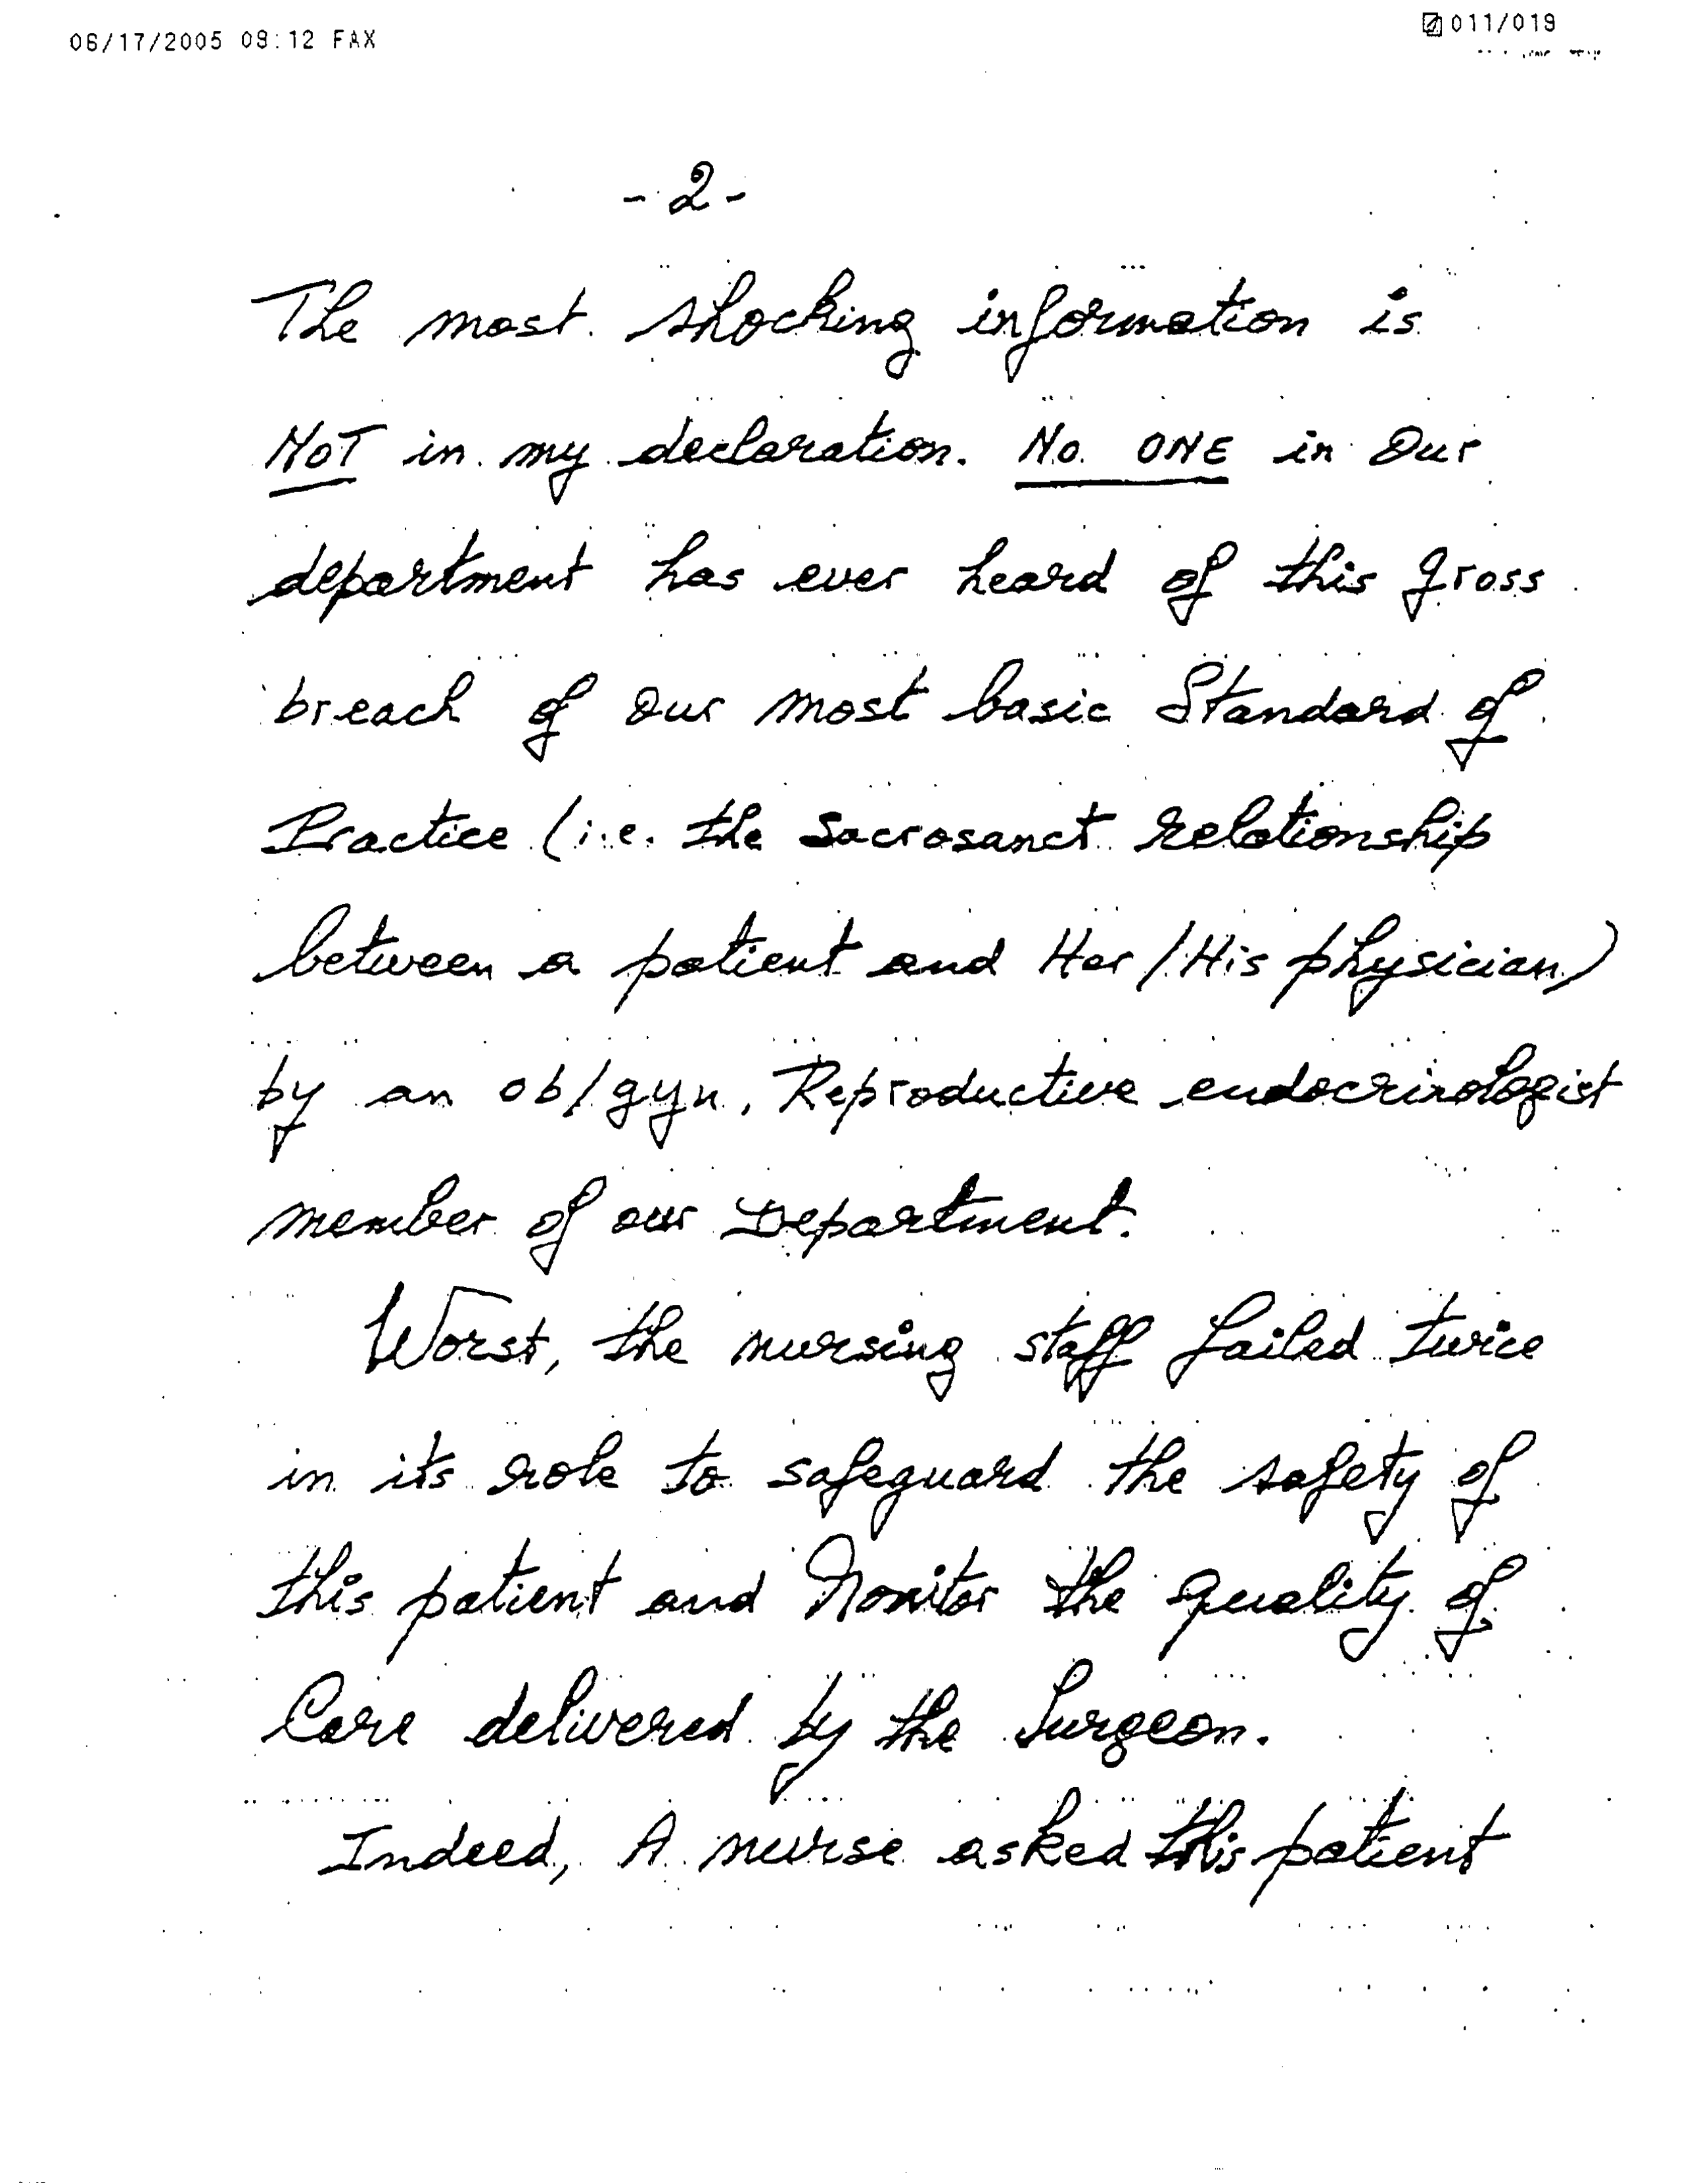 06/17/2005 09:12 FAX
011/019
- 2 -
The most shocking information is
NOT in my declaration. No ONE in Our
department has ever heard of this gross
breach of our most basic Standard of
Practice (i.e. the Sacrosanct relationship
between a patient and Her/His physician)
by an ob/gyn, Reproductive endocrinologist
member of our Department.
Worst, the nursing staff failed twice
in its role to safeguard the safety of
this patient and Monitor the quality of
Care delivered by the Surgeon.
Indeed, A nurse asked this patient